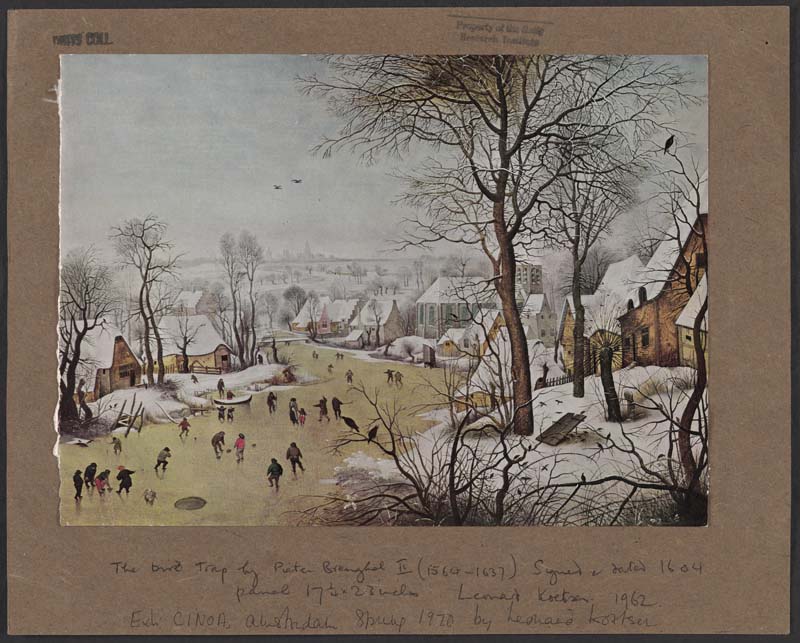 WITT COLL.
Property of the Getty
Research Institute
The bird Trap by Pieter Brueghel II (1564-1637) Signed & dated 1604
panel 17½ x 23 inches Leonard Koetser 1962.
Exh CINOA, Amsterdam Spring 1970 by Leonard Koetser